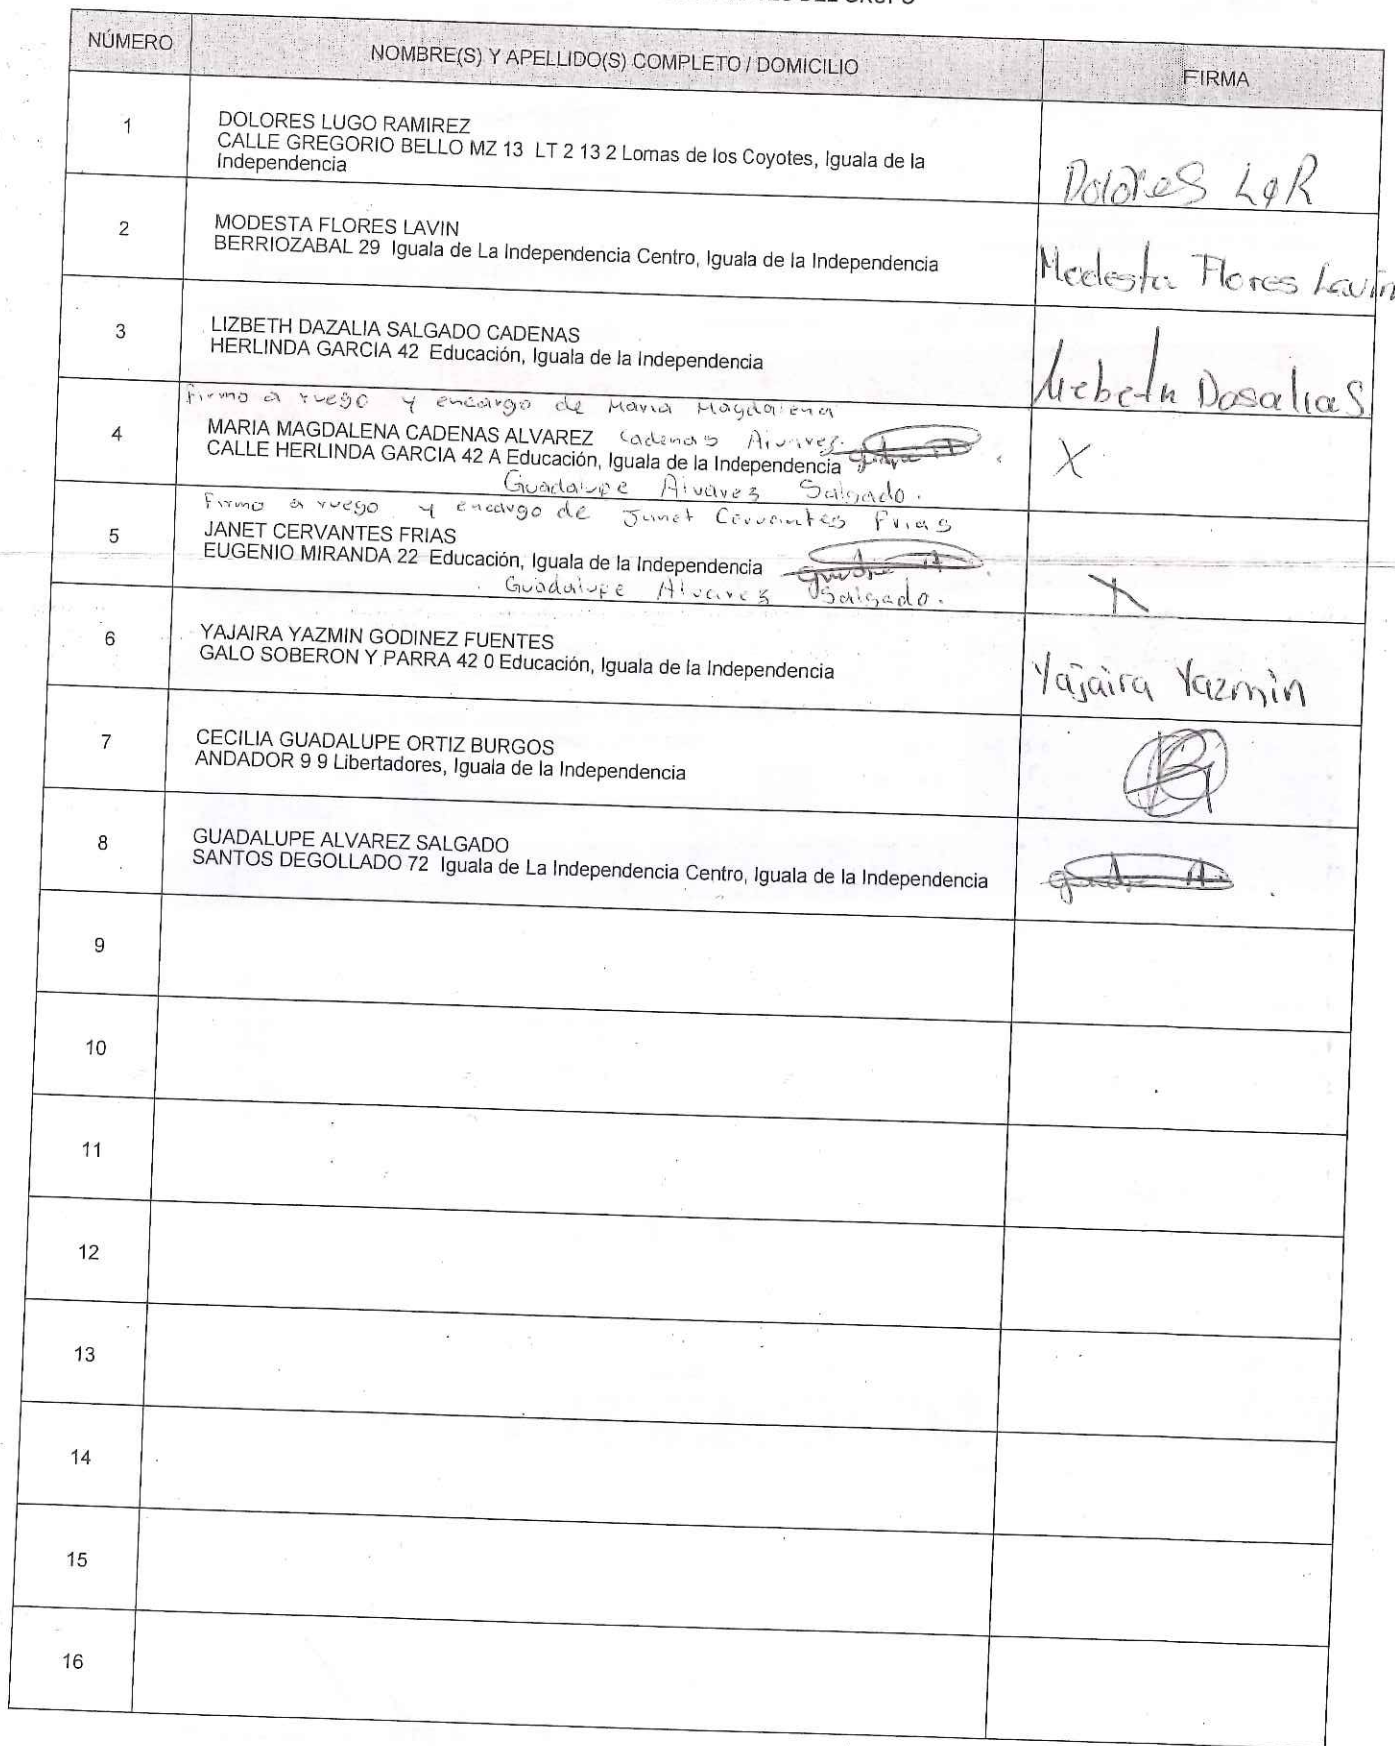 DEL GRUPO
NÚMERO
NOMBRE(S) Y APELLIDO(S) COMPLETO / DOMICILIO
FIRMA
1
DOLORES LUGO RAMIREZ
CALLE GREGORIO BELLO MZ 13 LT 2 13 2 Lomas de los Coyotes, Iguala de la
Independencia
Dolores L R
2
MODESTA FLORES LAVIN
BERRIOZABAL 29 Iguala de La Independencia Centro, Iguala de la Independencia
Modesta Flores Lavin
3
LIZBETH DAZALIA SALGADO CADENAS
HERLINDA GARCIA 42 Educación, Iguala de la Independencia
Lizbeth Dasalia S
Firmo a ruego y encargo de Maria Magdalena
4
MARIA MAGDALENA CADENAS ALVAREZ Cadenas Alvares.
CALLE HERLINDA GARCIA 42 A Educación, Iguala de la Independencia
X
Guadalupe Alvarez Salgado.
Firmo a ruego y encargo de Janet Cervantes Frias
5
JANET CERVANTES FRIAS
EUGENIO MIRANDA 22 Educación, Iguala de la Independencia
Guadalupe Alvarez Salgado.
X
6
YAJAIRA YAZMIN GODINEZ FUENTES
GALO SOBERON Y PARRA 42 0 Educación, Iguala de la Independencia
Yajaira Yazmin
7
CECILIA GUADALUPE ORTIZ BURGOS
ANDADOR 9 9 Libertadores, Iguala de la Independencia
8
GUADALUPE ALVAREZ SALGADO
SANTOS DEGOLLADO 72 Iguala de La Independencia Centro, Iguala de la Independencia
9
10
11
12
13
14
15
16